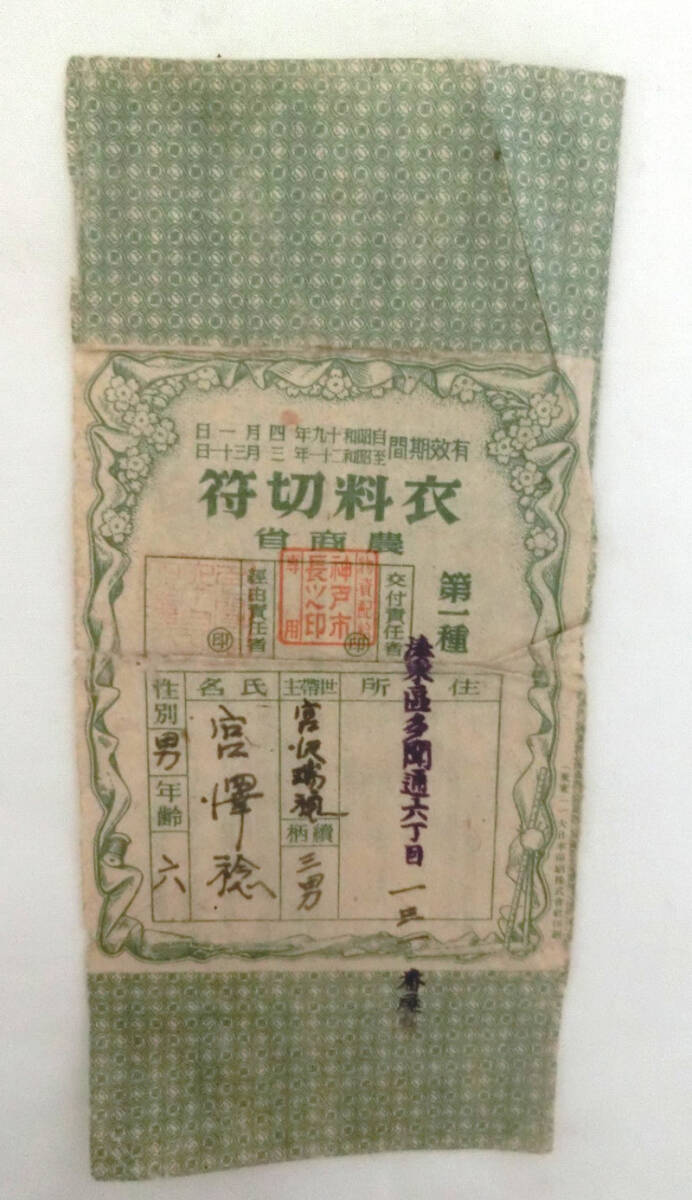 有效期間
自昭和十九年四月一日
至昭和二十一年三月三十一日
衣料切符
農商省
第一種
交付責任者
印
神戸市
長之印
專用
經由責任者
印
住所
湊東區多聞通六丁目
一三一
番
世帶主
宮沢瑞穂
續柄
三男
氏名
宮澤稔
性別
男
年齡
六